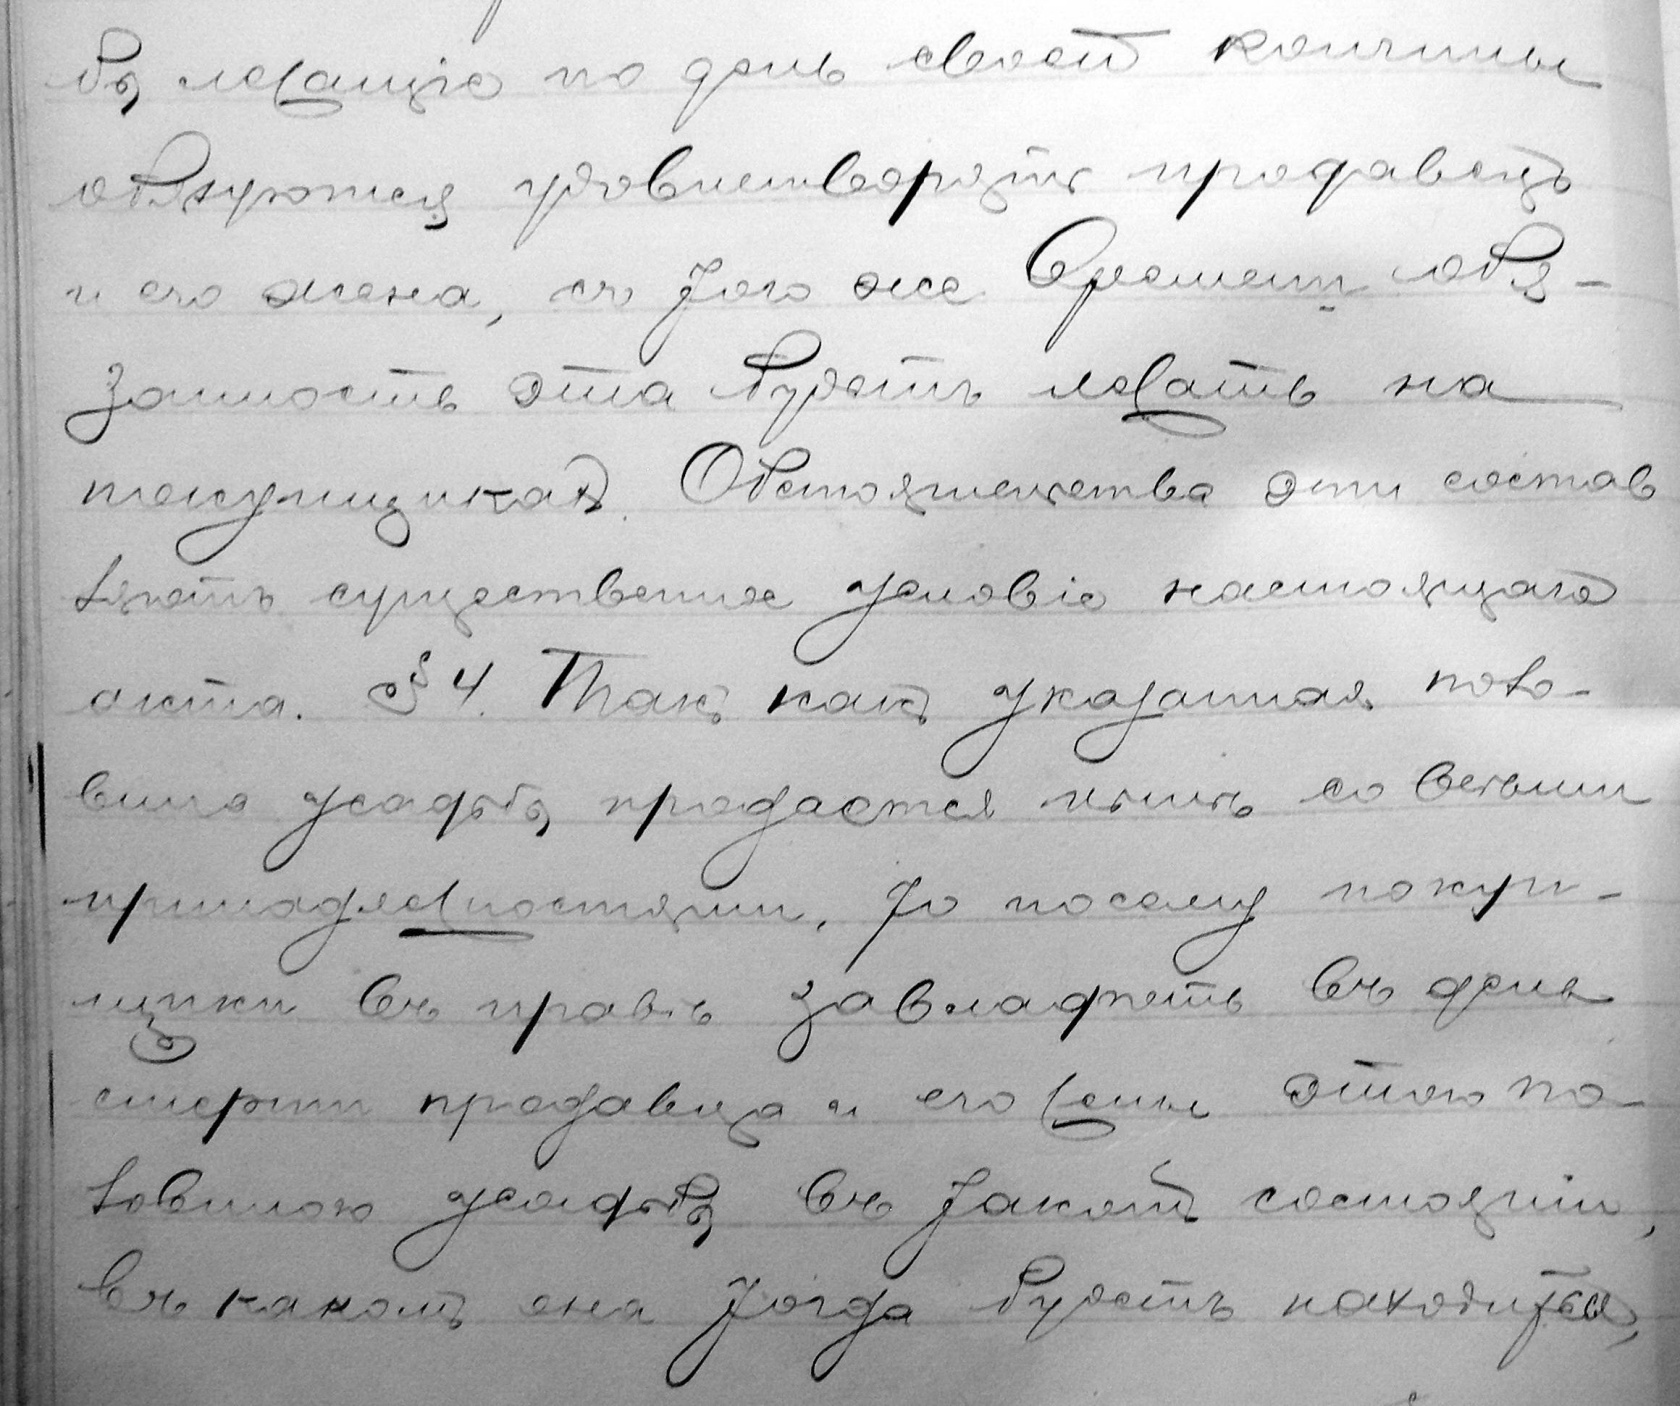 бы лежащіе по день своей кончины
обязуются удовлетворять продавецъ
и его жена, съ того же времени обя-
занность эта будетъ лежать на
покупщикахъ. Обстоятельства эти состав
ляютъ существенное условіе настоящаго
акта. § 4. Такъ какъ указанная поло-
вина усадьбы продается нынѣ со всѣми
принадлежностями, то посему покуп-
щики въ правѣ завладѣть въ день
смерти продавца и его жены этою по-
ловиною усадьбы въ такомъ состояніи,
въ какомъ она тогда будетъ находиться,